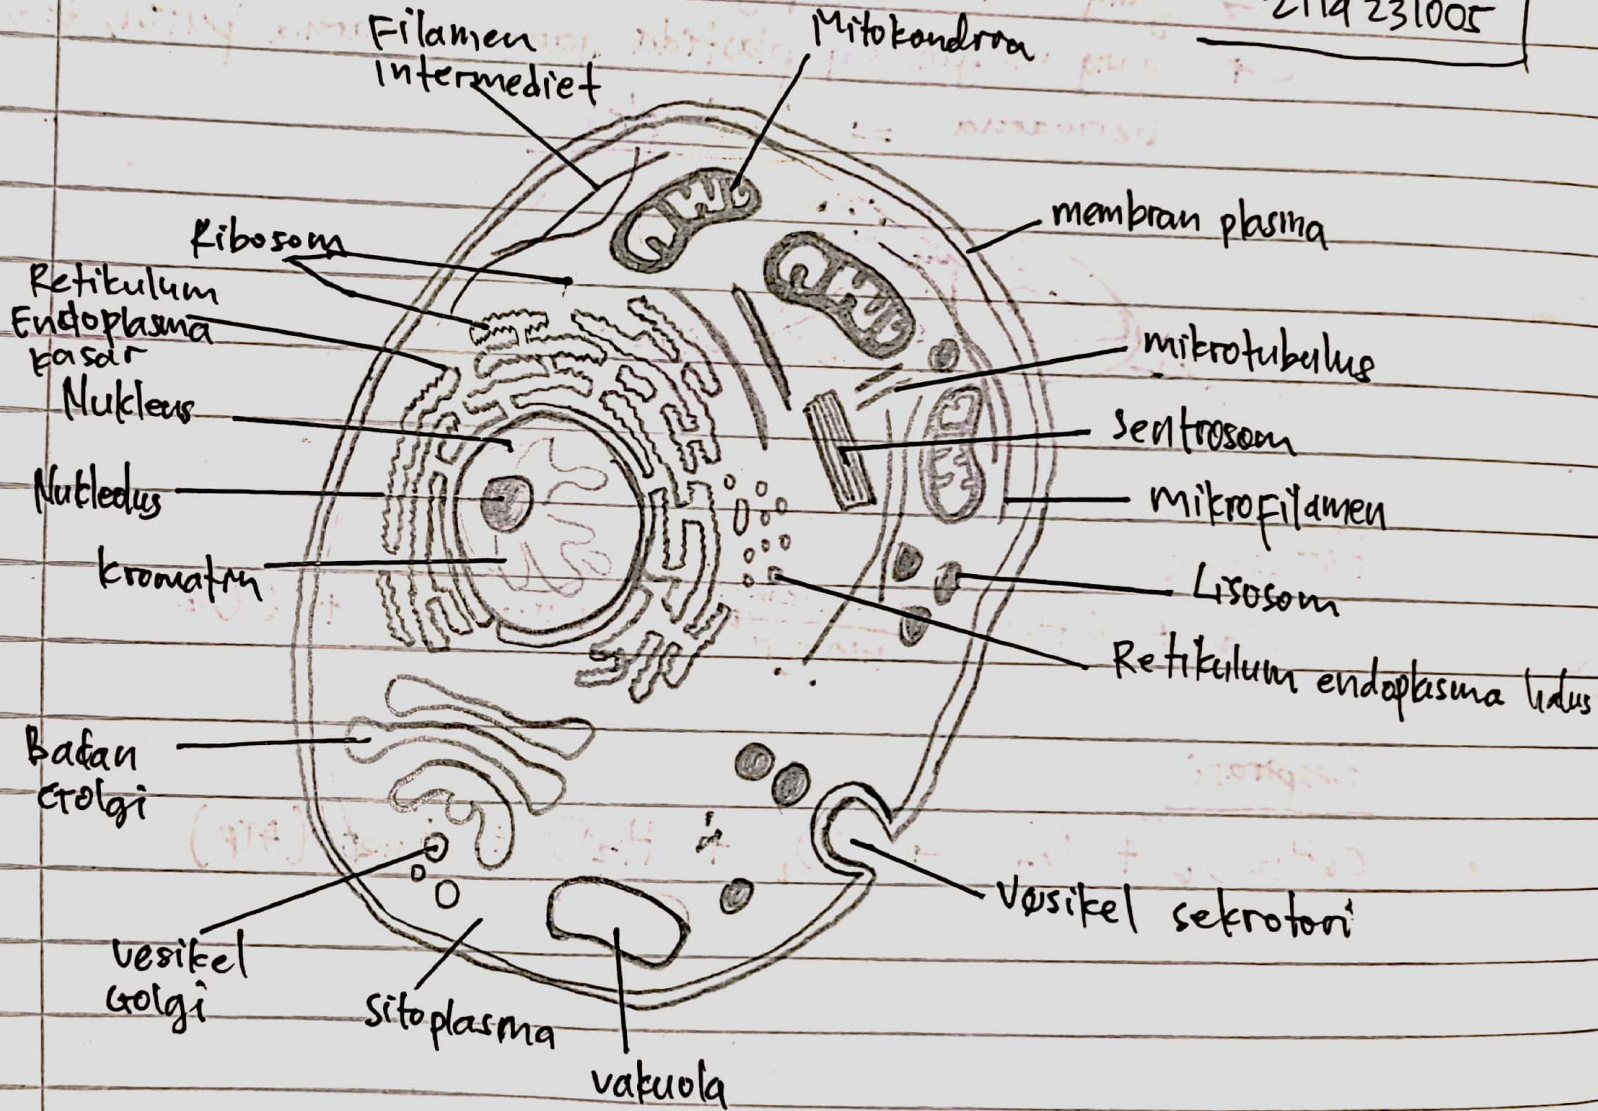 2119231005
Filamen
Intermediet
Mitokondria
Ribosom
membran plasma
Retikulum
Endoplasma
kasar
mikrotubulus
Nukleus
Sentrosom
Nukleolus
Mikrofilamen
kromatin
Lisosom
Retikulum endoplasma halus
Badan
Golgi
Vesikel sekretori
Vesikel
Golgi
Sitoplasma
Vakuola